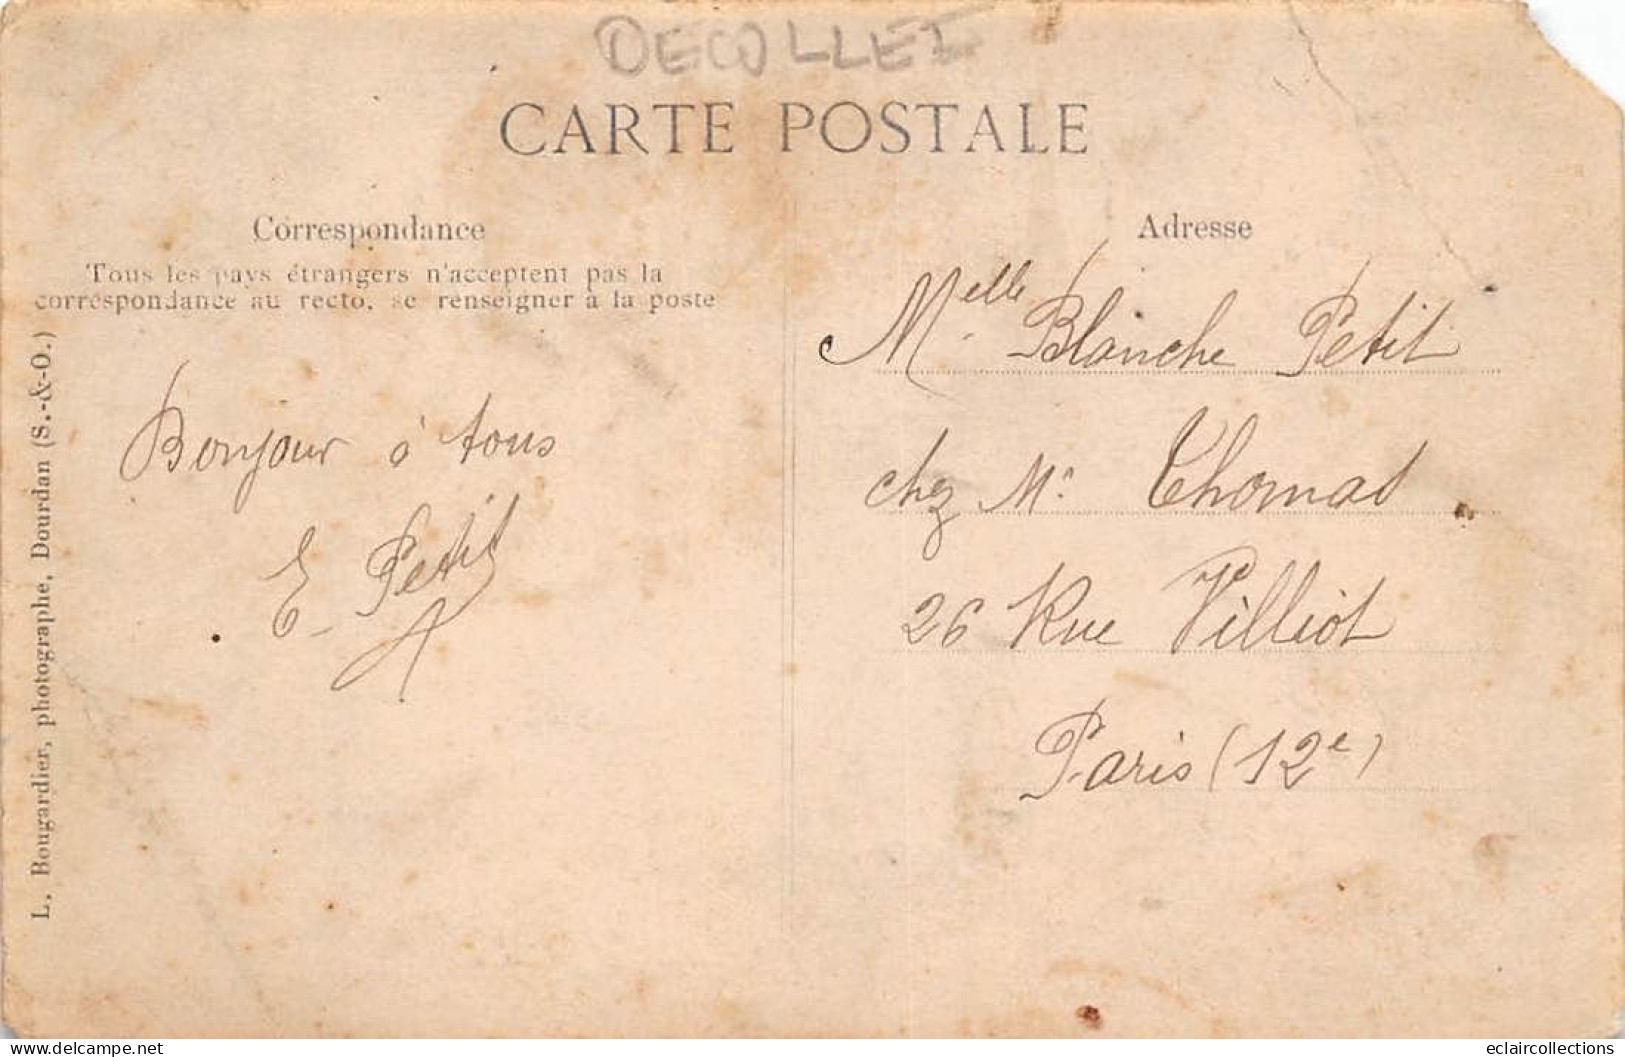 DECOLLEE
CARTE POSTALE
Correspondance
Tous les pays étrangers n'acceptent pas la
correspondance au recto, se renseigner à la poste
L. Bougardier, photographe, Dourdan (S.-&-O.)
Bonjour à tous
E. Petit
Adresse
Melle Blanche Petit
chez Mr Thomas
26 Rue Villiot
Paris (12e)
delcampe.net
eclaircollections